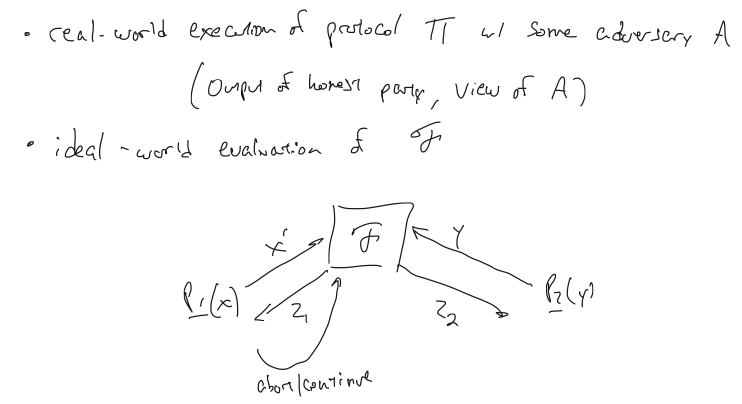 • real-world execution of protocol Π w/ some adversary A
(Output of honest party, View of A)
• ideal-world evaluation of F
F
x' y
P₁(x) z₁ z₂ P₂(y)
abort/continue